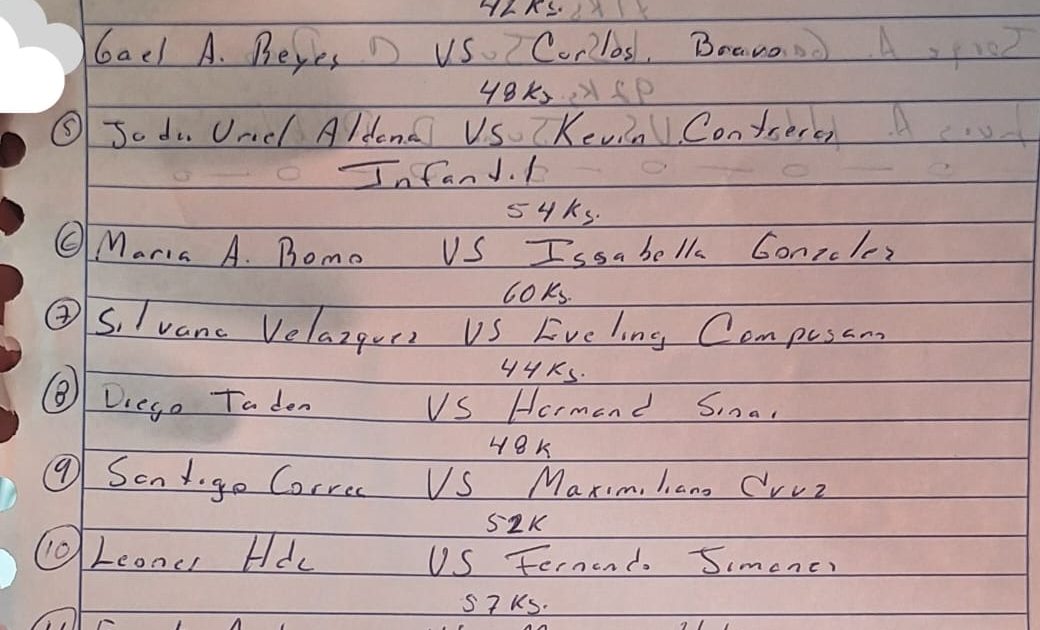 42 Ks.
Gael A. Reyes VS Carlos. Bravo
48 Ks
5 Jadu Uriel Aldana VS Kevin Contreras
Infantil
54 Ks.
6 Maria A. Romo VS Issabella Gonzalez
60 Ks.
7 Silvana Velazquez VS Eveling Campusano
44 Ks.
8 Diego Taden VS Hermand Sinai
48 K
9 Santigo Correa VS Maximiliano Cruz
52 K
10 Leones Hdc VS Fernando Jimenez
57 Ks.